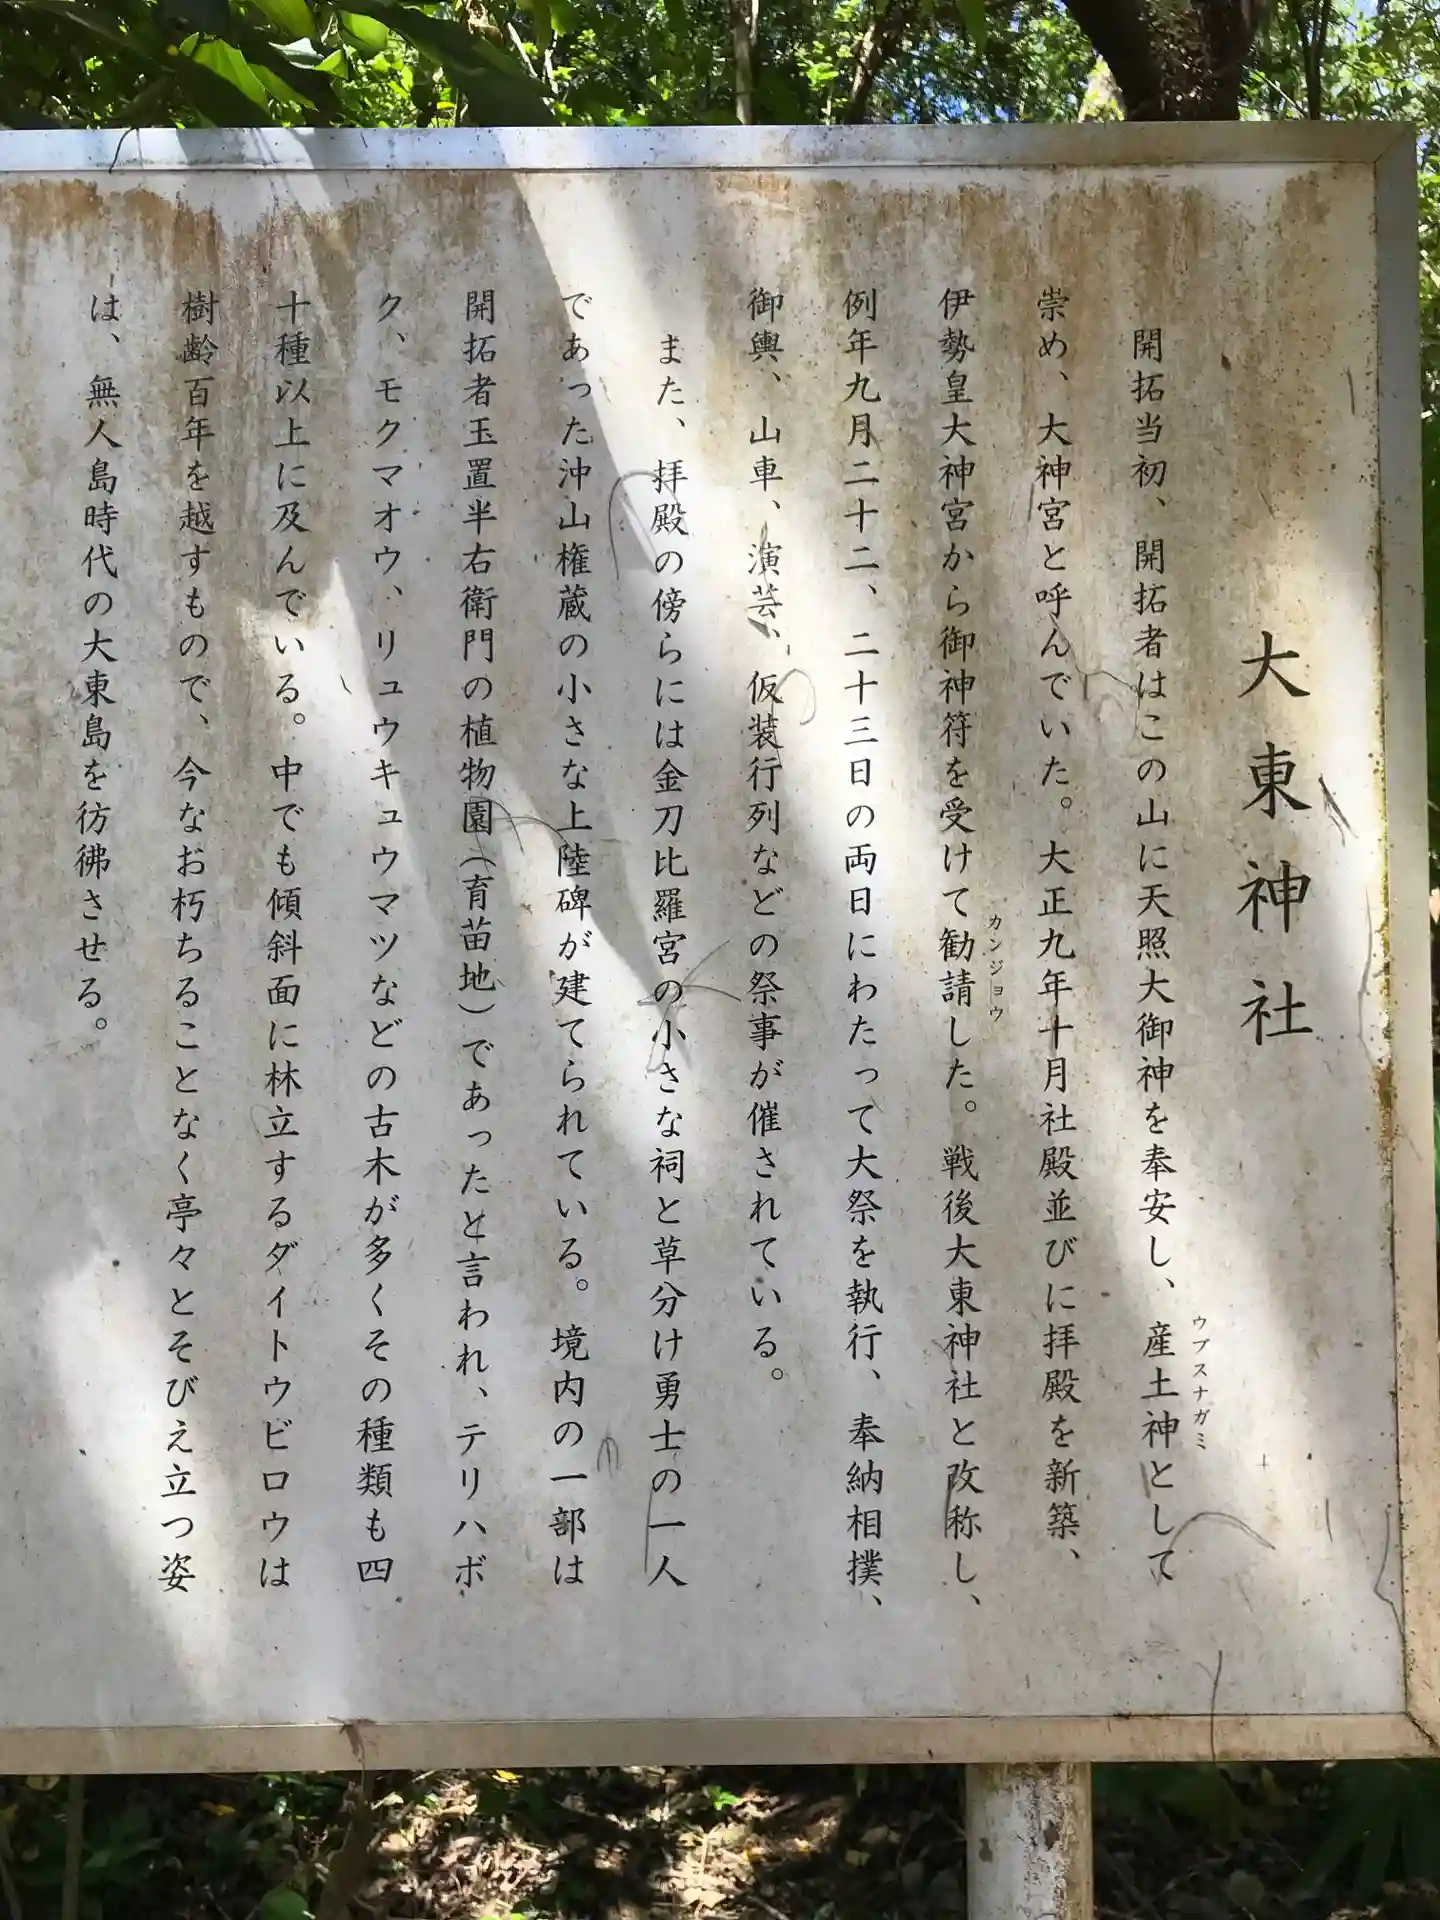 大東神社
開拓当初、開拓者はこの山に天照大御神を奉安し、産土神として
ウブスナガミ
崇め、大神宮と呼んでいた。大正九年十月社殿並びに拝殿を新築、
伊勢皇大神宮から御神符を受けて勧請した。戦後大東神社と改称し、
カンジョウ
例年九月二十二、二十三日の両日にわたって大祭を執行、奉納相撲、
御輿、山車、演芸、仮装行列などの祭事が催されている。
また、拝殿の傍らには金刀比羅宮の小さな祠と草分け勇士の一人
であった沖山権蔵の小さな上陸碑が建てられている。境内の一部は
開拓者玉置半右衛門の植物園（育苗地）であったと言われ、テリハボ
ク、モクマオウ、リュウキュウマツなどの古木が多くその種類も四
十種以上に及んでいる。中でも傾斜面に林立するダイトウビロウは
樹齢百年を越すもので、今なお朽ちることなく亭々とそびえ立つ姿
は、無人島時代の大東島を彷彿させる。